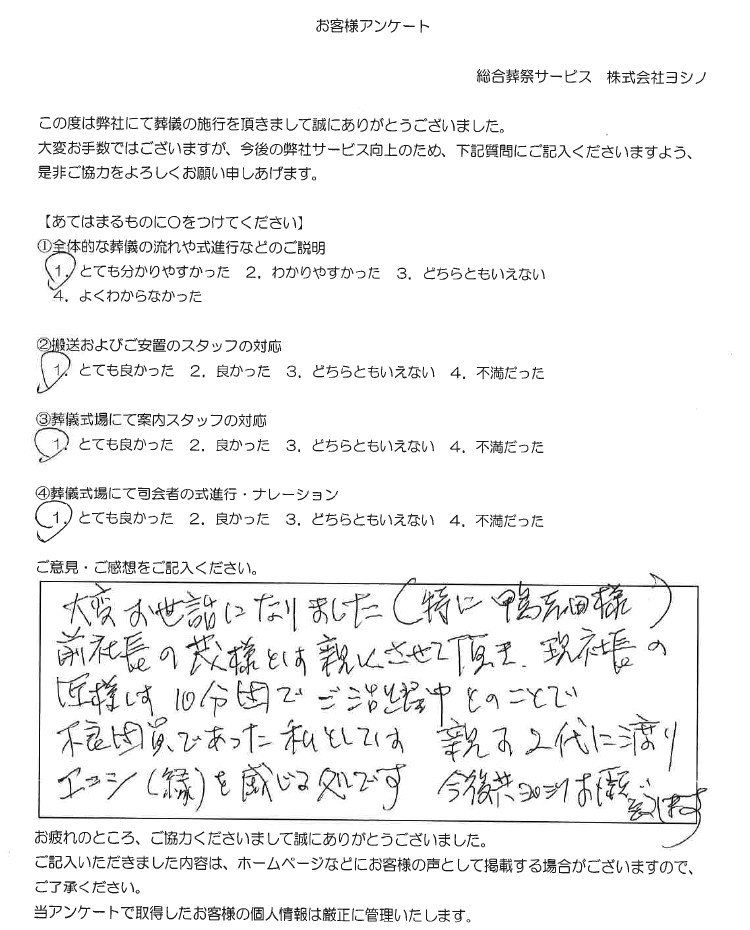 お客様アンケート
総合葬祭サービス 株式会社ヨシノ
この度は弊社にて葬儀の施行を頂きまして誠にありがとうございました。
大変お手数ではございますが、今後の弊社サービス向上のため、下記質問にご記入くださいますよう、
是非ご協力をよろしくお願い申しあげます。
【あてはまるものに○をつけてください】
①全体的な葬儀の流れや式進行などのご説明
1．とても分かりやすかった 2．わかりやすかった 3．どちらともいえない
4．よくわからなかった
②搬送およびご安置のスタッフの対応
1．とても良かった 2．良かった 3．どちらともいえない 4．不満だった
③葬儀式場にて案内スタッフの対応
1．とても良かった 2．良かった 3．どちらともいえない 4．不満だった
④葬儀式場にて司会者の式進行・ナレーション
1．とても良かった 2．良かった 3．どちらともいえない 4．不満だった
ご意見・ご感想をご記入ください。
大変お世話になりました（特に 鴨志田様）
前社長の 様とは親しくさせて頂き、現社長の
様は 分団でご活躍中とのことで
団員であった私としては 親子2代に渡り
（縁）を感じる処です 今後共 お願い致します
お疲れのところ、ご協力くださいまして誠にありがとうございました。
ご記入いただきました内容は、ホームページなどにお客様の声として掲載する場合がございますので、
ご了承ください。
当アンケートで取得したお客様の個人情報は厳正に管理いたします。